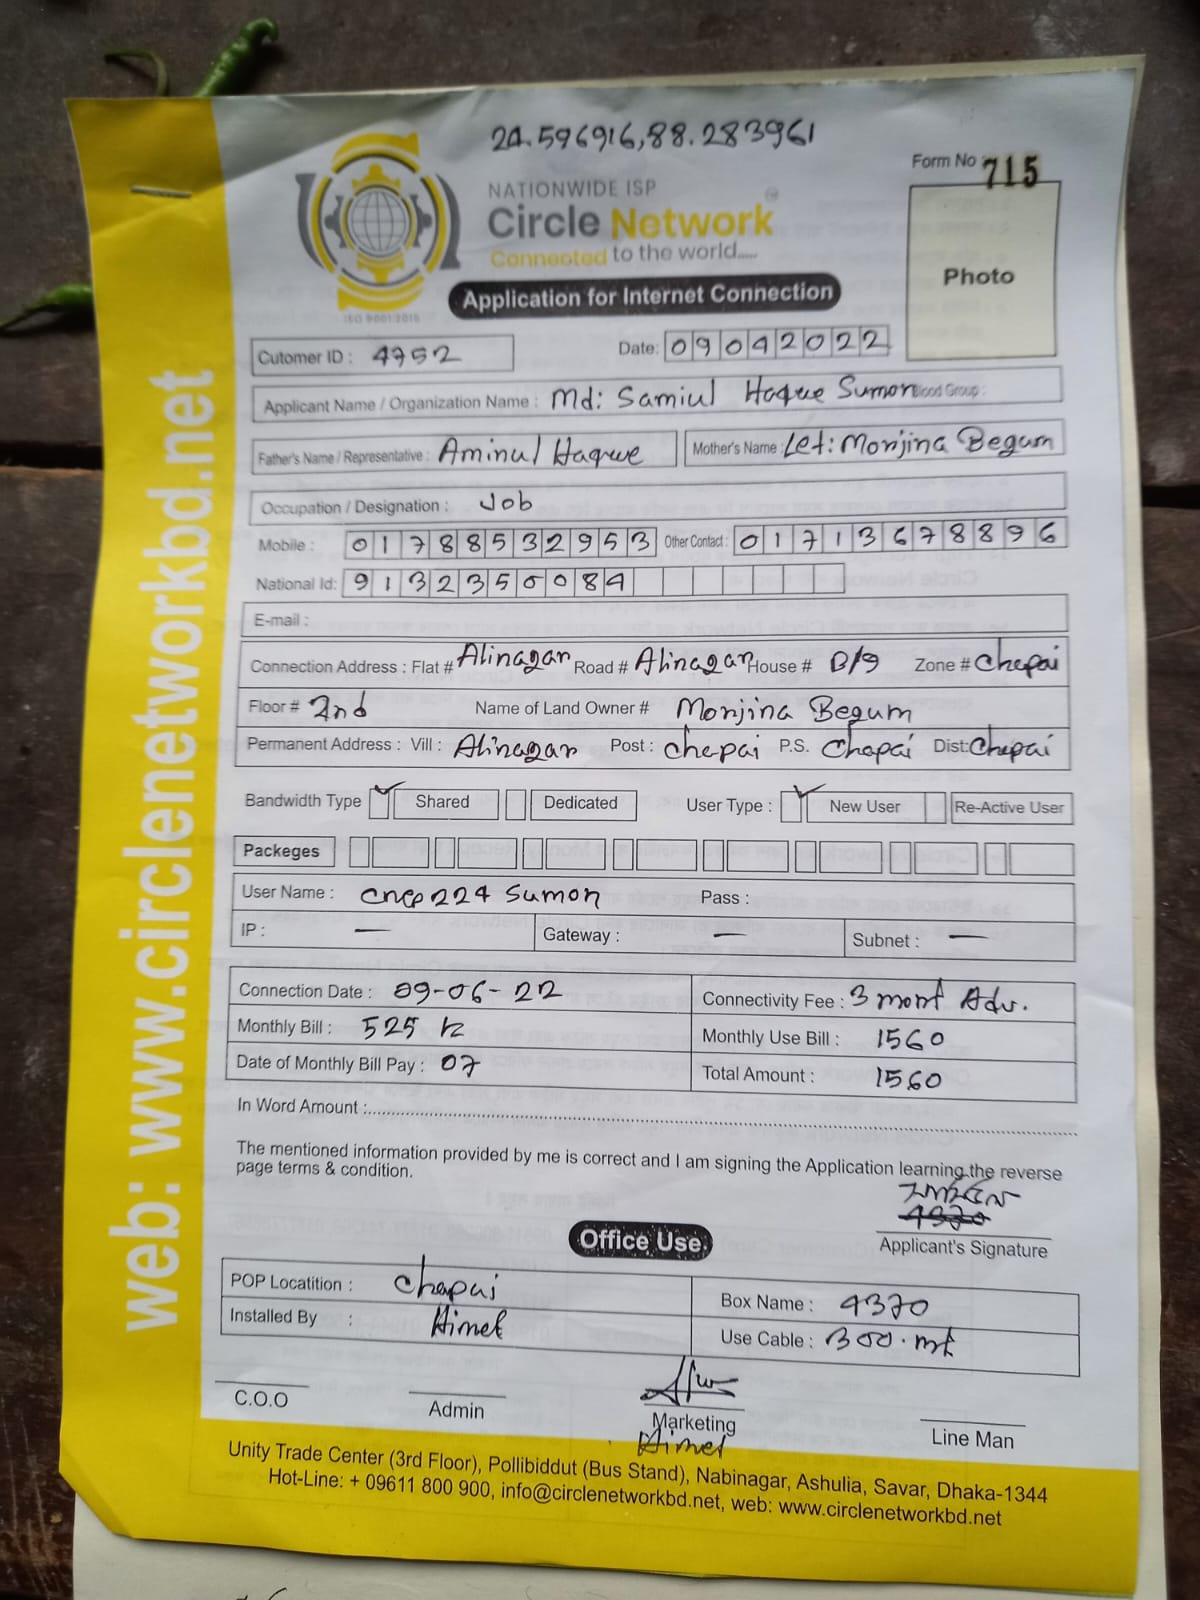 24.596916,88.283961
Form No : 715
NATIONWIDE ISP
Circle Network
Connected to the world.....
ISO 9001:2015
Application for Internet Connection
Photo
Cutomer ID : 4752
Date: 09042022
Applicant Name / Organization Name : Md: Samiul Haque Sumon Blood Group :
Father's Name / Representative : Aminul Haque Mother's Name : Let: Monjina Begum
Occupation / Designation : Job
Mobile : 01788532953 Other Contact : 01713678896
National Id: 9132350084
E-mail :
Connection Address : Flat # Alinagar Road # Alinagar House # B/9 Zone # Chapai
Floor # 2nd Name of Land Owner # Monjina Begum
Permanent Address : Vill : Alinagar Post : chapai P.S. Chapai Dist: Chapai
Bandwidth Type ✓ Shared Dedicated User Type : ✓ New User Re-Active User
Packeges
User Name : cncp224 sumon Pass :
IP : — Gateway : — Subnet : —
Connection Date : 09-06-22 Connectivity Fee : 3 mont Adv.
Monthly Bill : 525 Monthly Use Bill : 1560
Date of Monthly Bill Pay : 07 Total Amount : 1560
In Word Amount :
The mentioned information provided by me is correct and I am signing the Application learning the reverse
page terms & condition.
Applicant's Signature
Office Use.
POP Locatition : Chapai Box Name : 4370
Installed By : Himel Use Cable : 300.mt
C.O.O Admin Marketing Line Man
Himel
Unity Trade Center (3rd Floor), Pollibiddut (Bus Stand), Nabinagar, Ashulia, Savar, Dhaka-1344
Hot-Line: + 09611 800 900, info@circlenetworkbd.net, web: www.circlenetworkbd.net
web: www.circlenetworkbd.net